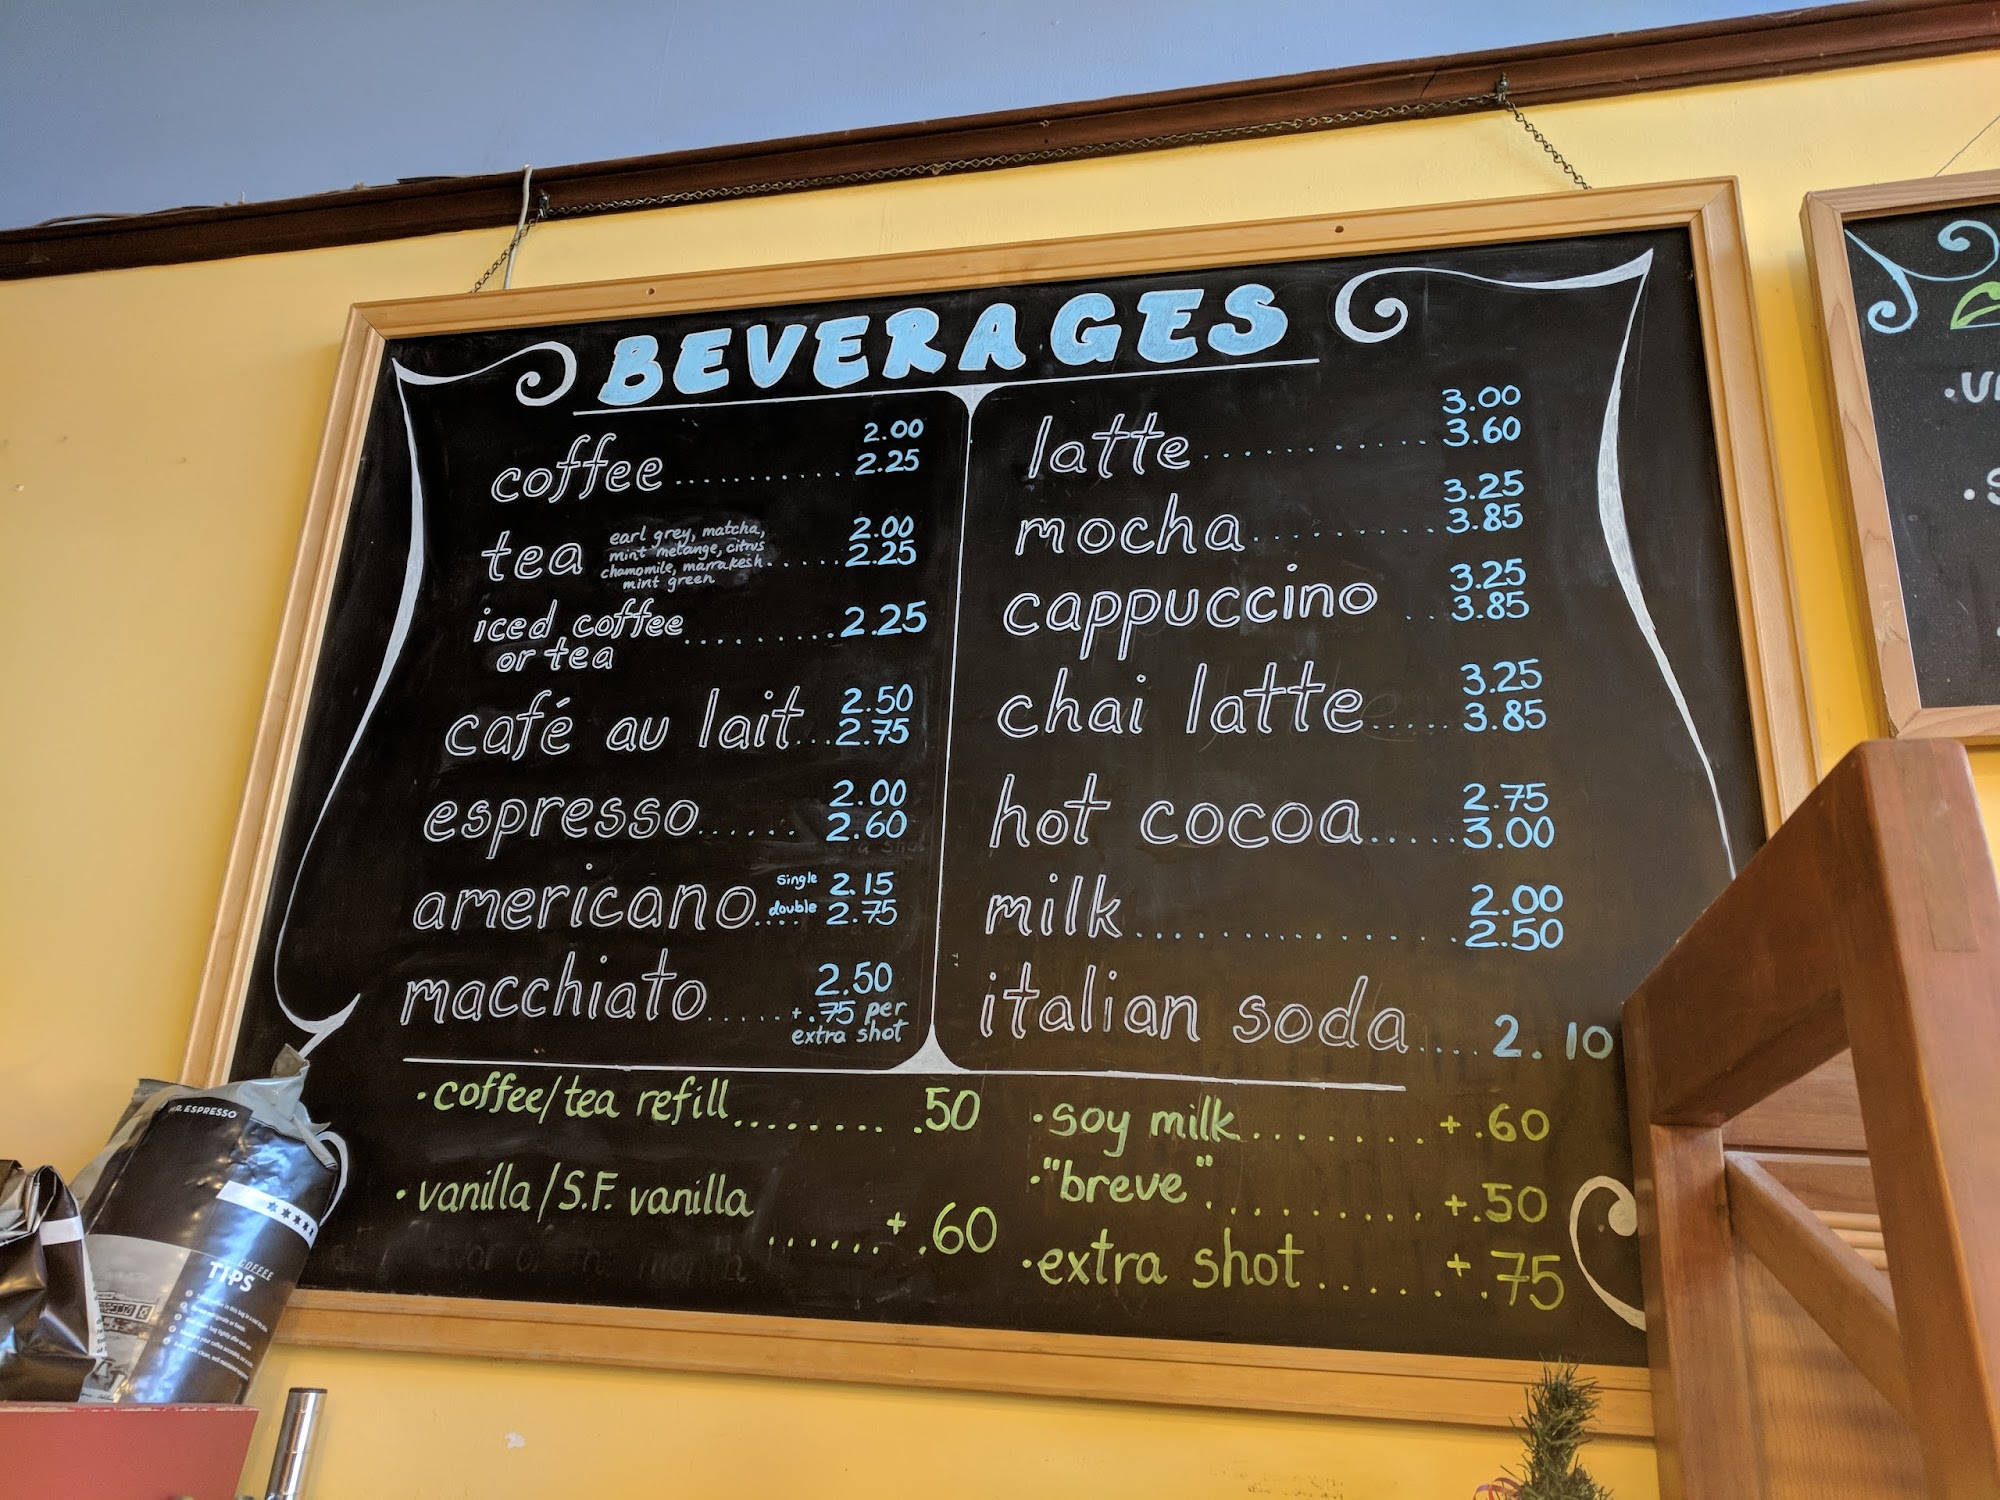 BEVERAGES
2.00
coffee.............2.25
tea earl grey, matcha, 2.00
mint melange, citrus
chamomile, marrakesh......2.25
mint green
iced coffee..........2.25
or tea
2.50
café au lait...2.75
2.00
espresso...... 2.60
single 2.15
americano.... double 2.75
macchiato..... 2.50
+.75 per
extra shot
3.00
latte..............3.60
3.25
mocha............3.85
3.25
cappuccino ..3.85
3.25
chai latte.....3.85
2.75
hot cocoa.....3.00
2.00
milk..............2.50
italian soda....2.10
•coffee/tea refill......... .50
•vanilla/S.F. vanilla ......+.60
•soy milk.........+.60
•"breve"..........+.50
•extra shot......+.75
MR. ESPRESSO
COFFEE
TIPS